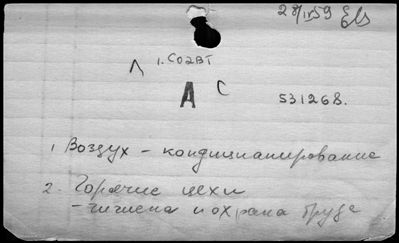 28/IV59
1. СО2ВТ
Л
А С
531268.
1 Воздух - кондиционирование
2. Горячие цехи
- гигиена и охрана труда